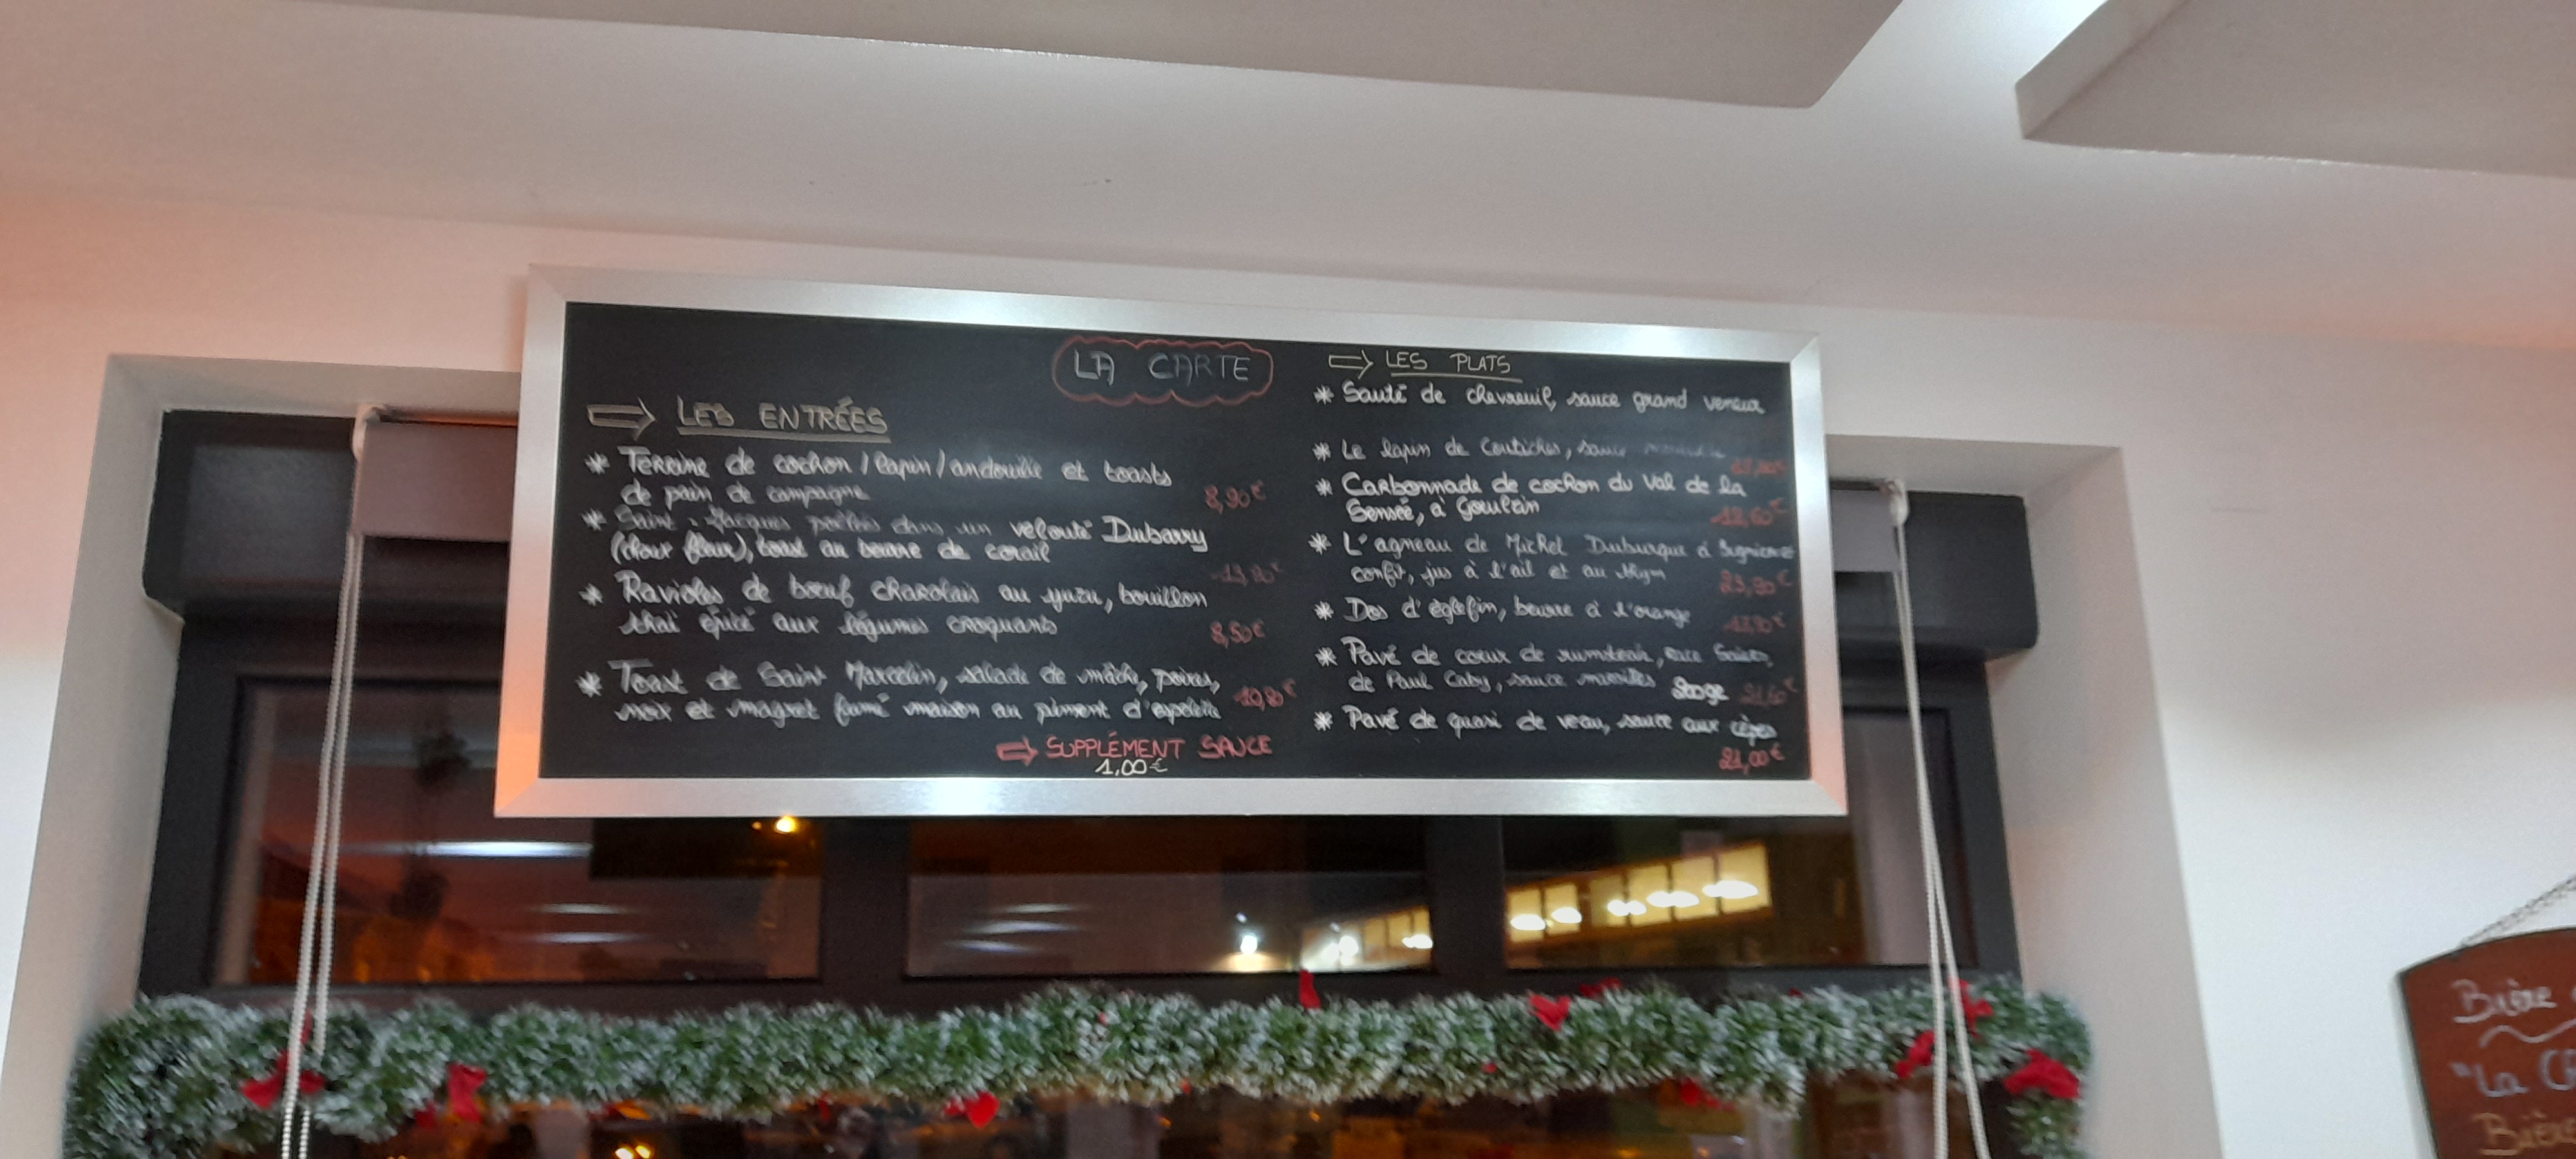 LA CARTE
LES ENTRÉES
* Terrine de cochon / lapin / andouille et toasts
de pain de campagne 8,90€
* Saint-Jacques poêlées dans un velouté Dubarry
(choux fleur), toast au beurre de corail
* Ravioles de bœuf charolais au yuzu, bouillon
thaï épicé aux légumes croquants 8,50€
* Toast de Saint Marcelin, salade de mâche, poires,
noix et magret fumé maison au piment d'espelette
SUPPLÉMENT SAUCE
1,00€
LES PLATS
* Sauté de chevreuil, sauce grand veneur
* Le lapin de Coutiches, sauce
* Carbonnade de cochon du Val de la
Sensée, à Goeulzin
* L'agneau de Michel Duburque à
confit, jus à l'ail et au thym 23,90€
* Dos d'églefin, beurre à l'orange
* Pavé de cœur de rumsteak, race
de Paul Caby, sauce morilles
* Pavé de quasi de veau, sauce aux cèpes
21,00€
Bière
"La
Bière